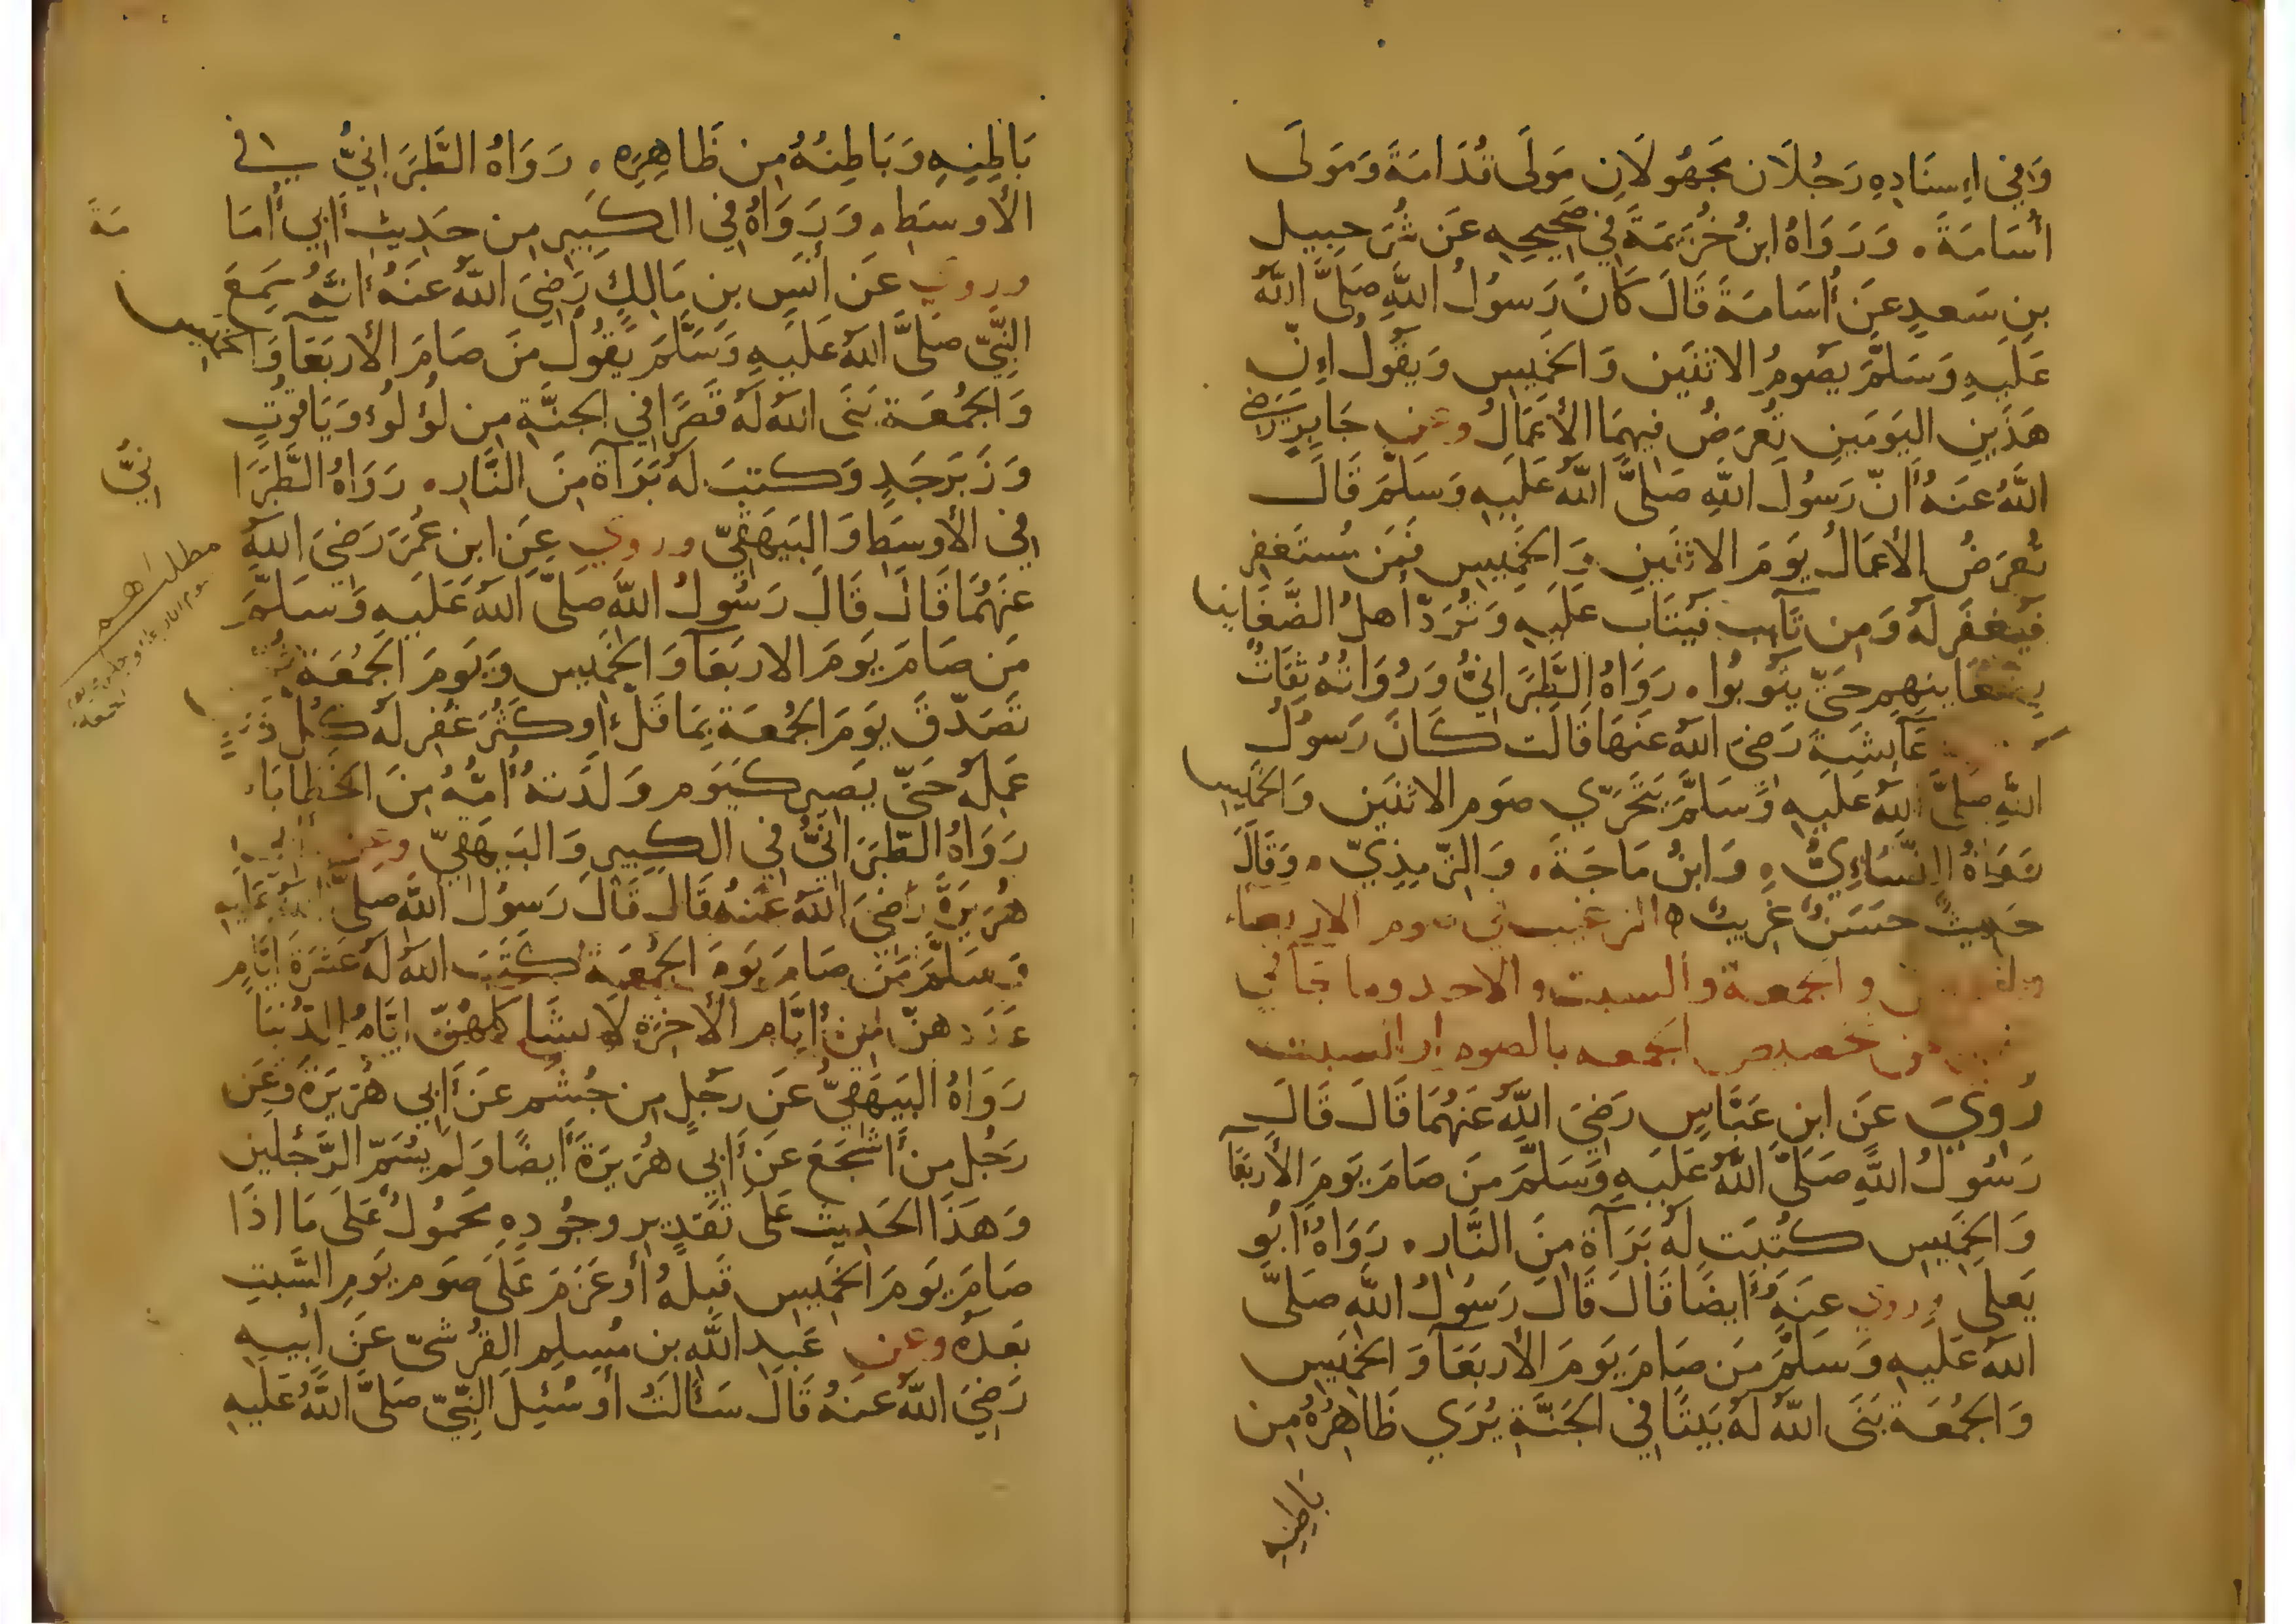 وَفِي إِسنَادِهِ رَجُلَان مَجهُولَانِ مَولَى قُدَامَةَ وَمَولَى
أُسَامَةَ. وَرَوَاهُ ابنُ خُزَيمَةَ فِي صَحِيحِهِ عَن شُرَحبِيل
بنِ سَعدٍ عَن أُسَامَةَ قَالَ كَانَ رَسُولُ اللَّهِ صَلَّى اللَّهُ
عَلَيهِ وَسَلَّمَ يَصُومُ الاثنَين وَالخَمِيس وَيَقُولُ إِنّ
هَذَينِ اليَومَينِ تُعرَضُ فِيهِمَا الأَعمَالُ وعن جَابِرٍ رَضِيَ
اللَّهُ عَنهُ أَنّ رَسُولَ اللَّهِ صَلَّى اللَّهُ عَلَيهِ وَسَلَّمَ قَالَ
تُعرَضُ الأَعمَالُ يَومَ الاثنَينِ وَالخَمِيس فَمَن مُستَغفِرٍ
فَيُغفَر لَهُ وَمِن تَآئب فَيُتَاب عَلَيهِ وَتُرَدّ أَهلُ الضَّغَاينِ
بِضَغَاينِهِم حَتَّى يَتُوبُوا. رَوَاهُ الطَّبَرَانِيُّ وَرُوَاتُهُ ثِقَاتٌ
عَآيِشَةَ رَضِيَ اللَّهُ عَنهَا قَالَت كَانَ رَسُولُ
اللَّهِ صَلَّى اللَّهُ عَلَيهِ وَسَلَّمَ يَتَحَرَّي صَوم الاثنَين وَالخَمِيس
رَوَاهُ النَّسَاءِيُّ. وَابنُ مَاجَةَ. وَالتِّرمِذِيّ. وَقَالَ
حَدِيثٌ حَسَنٌ غَرِيبٌ ه الترغيب في صوم الاربعاء
والجمعة والسبت والاحد وما جآ في
عن تخصيص الجمعه بالصوم او السبت
رُوِيَ عَن ابنِ عَبَّاسٍ رَضِيَ اللَّهُ عَنهُمَا قَالَ قَالَ
رَسُولُ اللَّهِ صَلَّى اللَّهُ عَلَيهِ وَسَلَّمَ مَن صَامَ يَومَ الأَربَعَآ
وَالخَمِيسِ كُتِبَت لَهُ بَرَآةٌ مِنَ النَّارِ. رَوَاهُ أَبُو
يَعلى وروي عَنهُ أَيضًا قَالَ قَالَ رَسُولُ اللَّهِ صَلَّى
اللَّهُ عَلَيهِ وَسَلَّمَ مَن صَامَ يَومَ الأَربَعَآ وَالخَمِيس
وَالجُمُعَةَ بَنَى اللَّهُ لَهُ بَيتًا فِي الجَنَّةِ يُرَي ظَاهِرُهُ مِن
بَاطِنِهِ
بَاطِنِهِ وَبَاطِنُهُ مِن ظَاهِرِهِ. رَوَاهُ الطَّبَرَانِيُّ في
الأَوسَطِ. وَرَوَاهُ فِي الكَبِيرِ مِن حَدِيثِ أَبِي أُمَا
مَةَ
وروي عَن أَنَسِ بنِ مَالِكٍ رَضِيَ اللَّهُ عَنهُ أَنَّهُ سَمِعَ
النَّبِيّ صَلَّى اللَّهُ عَلَيهِ وَسَلَّمَ يَقُولُ مَن صَامَ الأَربَعَآ وَالخَمِيس
وَالجُمُعَةَ بَنَى اللَّهُ لَهُ قَصرًا فِي الجَنَّةِ مِن لُؤلُوءٍ وَيَاقُوتٍ
وَزَبَرجَدٍ وَكتبَ لَهُ بَرَآةٌ مِنَ النَّارِ. رَوَاهُ الطَّبَرَا
نِيُّ
فِي الأَوسَطِ وَالبَيهَقِيّ وروي عَنِ ابن عُمَرَ رَضِيَ اللَّهُ
عَنهُمَا قَالَ قَالَ رَسُولُ اللَّهِ صَلَّى اللَّهُ عَلَيهِ وَسَلَّمَ
مَن صَامَ يَومَ الاربَعَآ وَالخَمِيس وَيَومَ الجُمُعَةِ ثُمَّ
تَصَدّقَ يَومَ الجُمعَةِ بِمَا قَلّ أَو كَثُرَ غُفِر لَهُ كُل ذَنبٍ
عَمِلَهُ حَتَّى يَصِير كَيَوم وَلَدَتهُ أُمُّهُ مِنَ الخَطَايَا
رَوَاهُ الطَّبَرَانِيُّ فِي الكَبِيرِ وَالبَيهَقِيّ وعن أبي
هُرَيرَةَ رَضِيَ اللَّهُ عَنهُ قَالَ قَالَ رَسُولُ اللَّهِ صَلَّى اللَّهُ عَلَيهِ
وَسَلَّمَ مَن صَامَ يَومَ الجُمُعَةِ كَتَبَ اللَّهُ لَهُ عَشَرَةَ أَيَّامٍ
عَدَدهنّ مِن أَيَّامِ الأَخِرَةِ لَا يُشَاكِلُهُنّ أَيَّامُ الدُّنيَا
رَوَاهُ البَيهَقِيّ عَن رَجُلٍ مِن جُشَم عَن أَبِي هُرَيرَةَ وَعَن
رَجُلٍ مِن أَشجَعَ عَن أَبِي هُرَيرَةَ أَيضًا وَلَم يُسَمّ الرَّجُلَينِ
وَهَذَا الحَدِيث عَلَى تَقدِيرِ وجُودِهِ مَحمُولٌ عَلَى مَا اذَا
صَامَ يَومَ الخَمِيسِ قَبلَهُ أَو عَزَمَ عَلَى صَوم يَومِ السَّبتِ
بَعدَهُ وعن عَبدِ اللَّهِ بن مُسلِم القُرشيّ عَن أَبِيهِ
رَضِيَ اللَّهُ عَنهُ قَالَ سَأَلتُ أَو سُئِلَ النَّبِيّ صَلَّى اللَّهُ عَلَيهِ